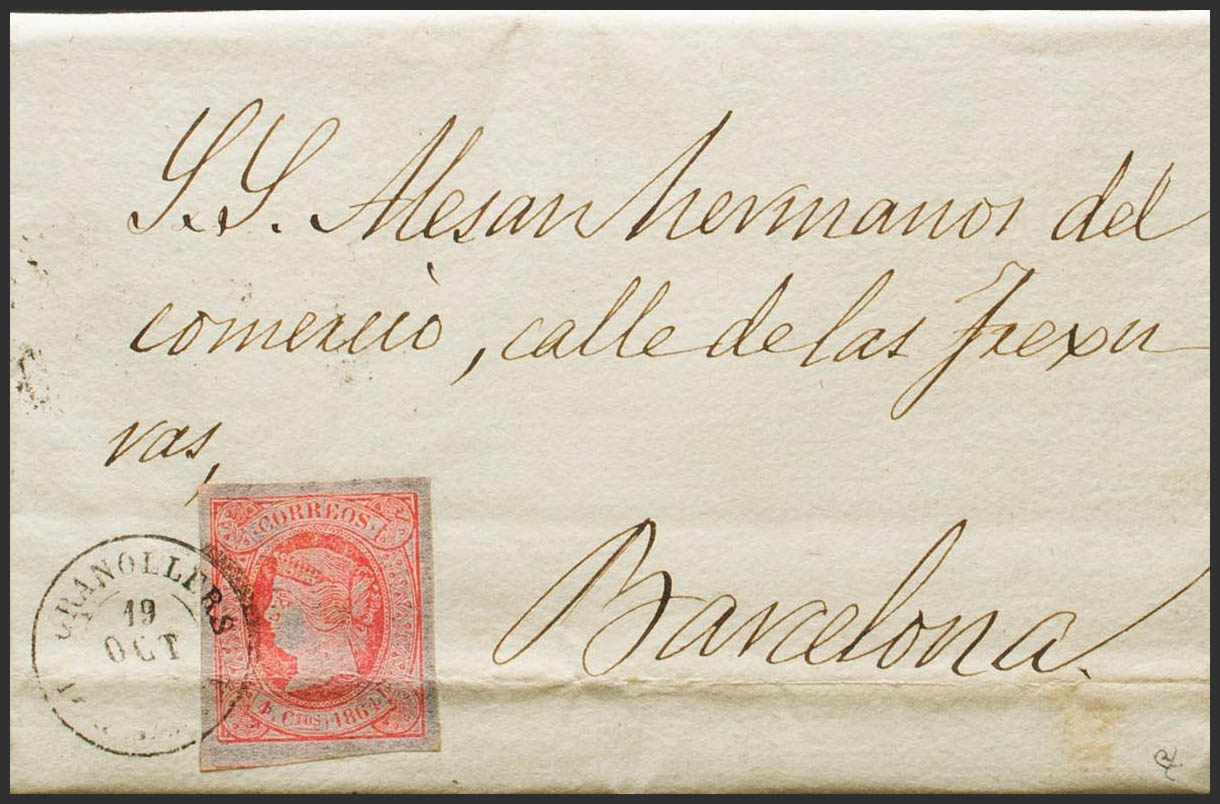 S.S. Alesan hermanos del
comercio, calle de las Trexu
ras,
Barcelona.
CORREOS.
4. Ctos. 1864
GRANOLLERS
19
OCT